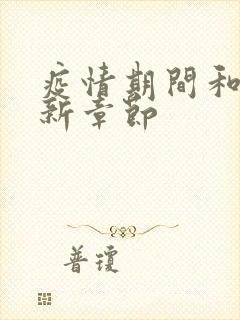 疫情期間和
新章節
普瓊